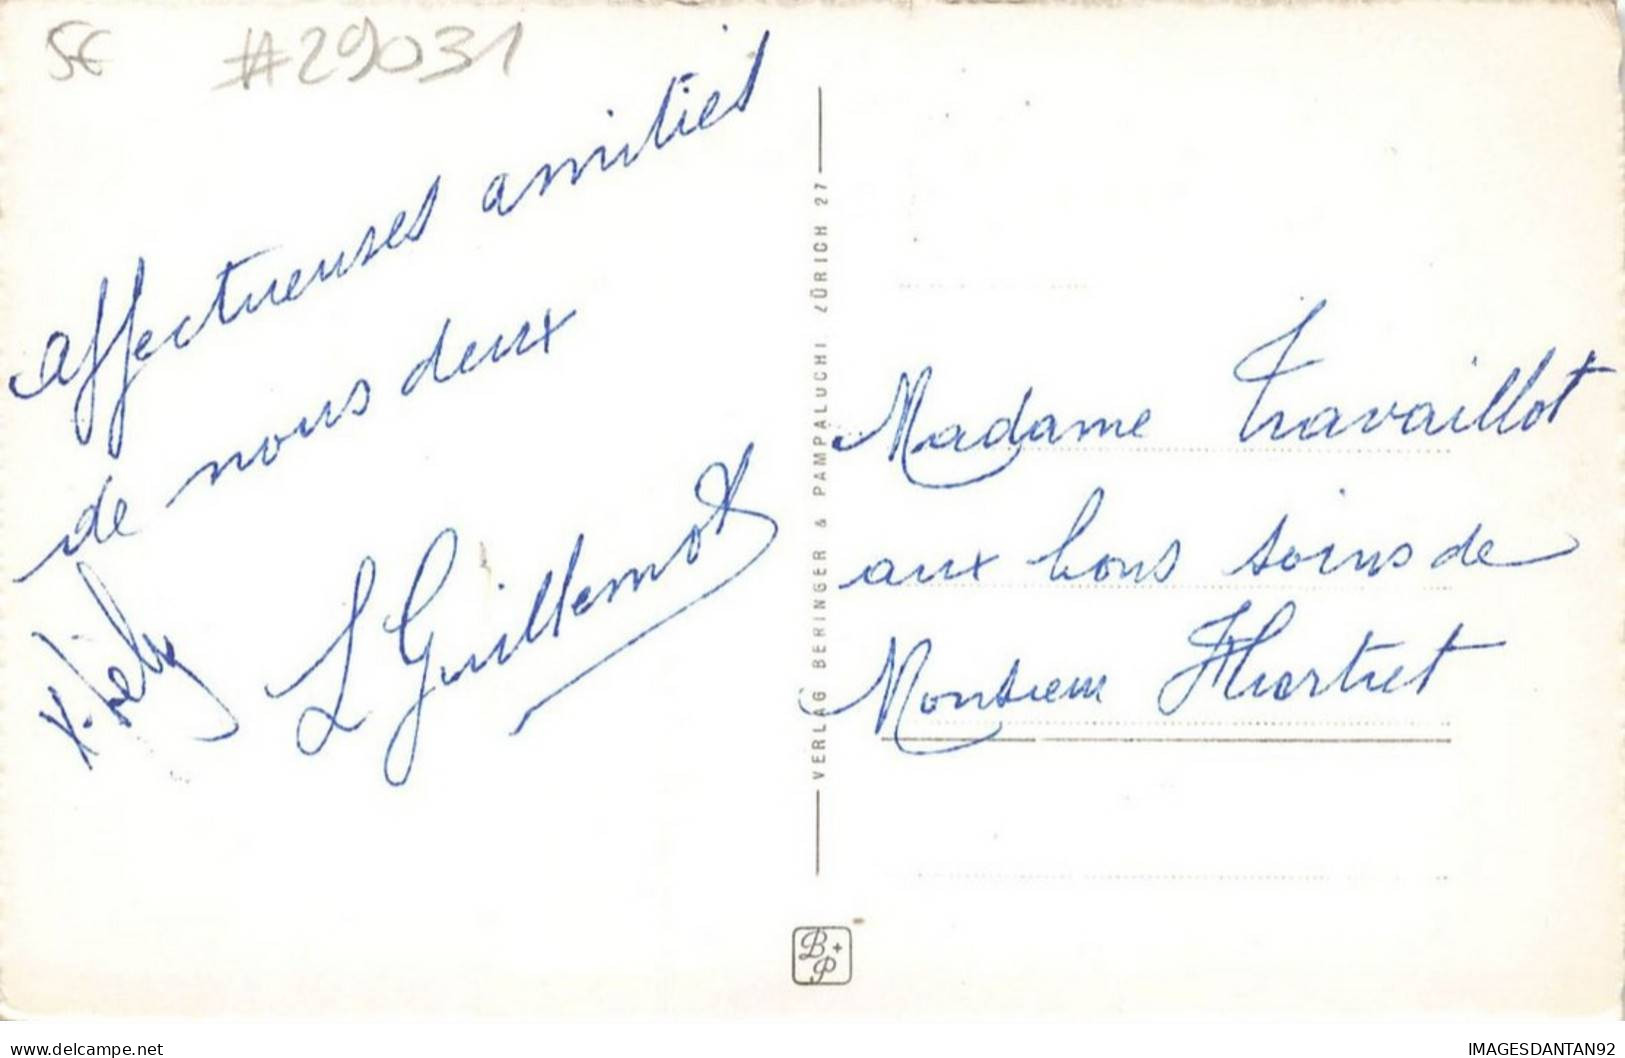 5€ #29031
affectueuses amitiés
de nous deux
L Guillemot
VERLAG BERINGER & PAMPALUCHI, ZÜRICH 27
Madame Travaillot
aux bons soins de
Monsieur
B+P
delcampe.net
IMAGESDANTAN92